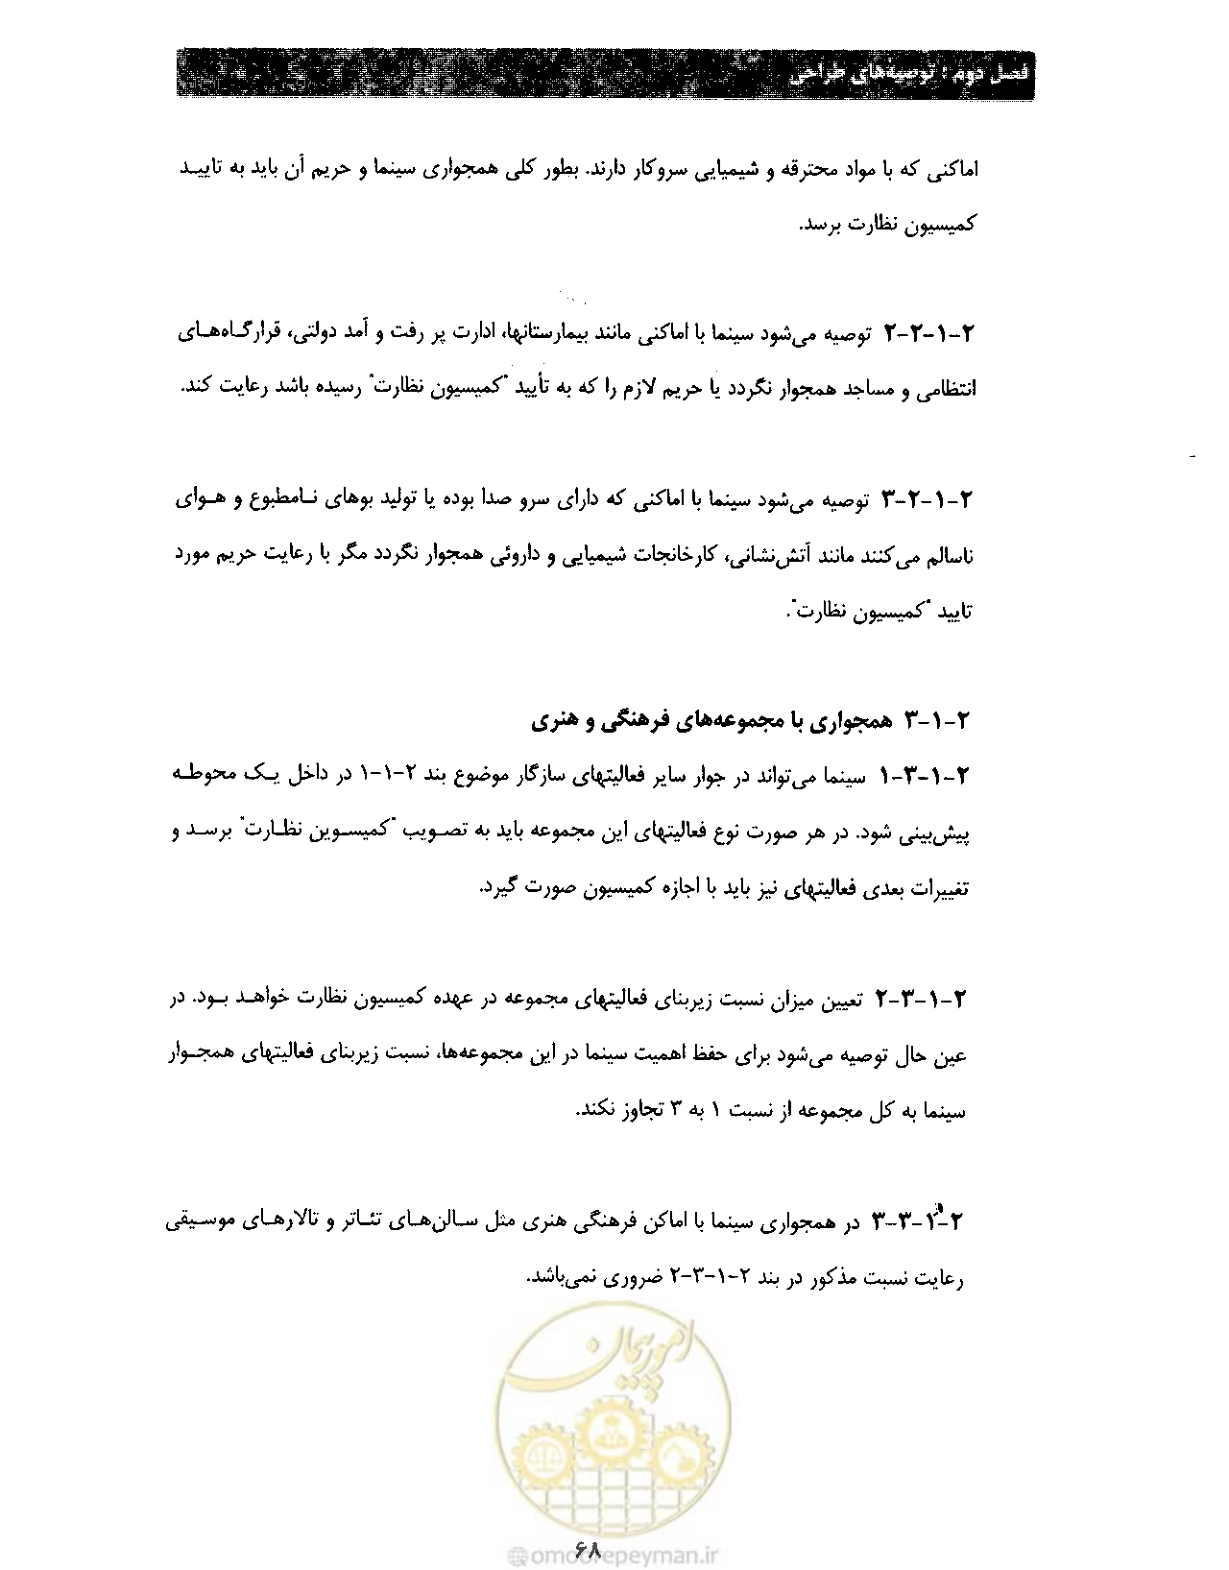 فصل دوم : توصیه‌های طراحی
اماکنی که با مواد محترقه و شیمیایی سروکار دارند. بطور کلی همجواری سینما و حریم آن باید به تایید
کمیسیون نظارت برسد.
۲-۱-۲-۲ توصیه می‌شود سینما با اماکنی مانند بیمارستانها، ادارت پر رفت و آمد دولتی، قرارگاه‌های
انتظامی و مساجد همجوار نگردد یا حریم لازم را که به تأیید "کمیسیون نظارت" رسیده باشد رعایت کند.
۲-۱-۲-۳ توصیه می‌شود سینما با اماکنی که دارای سرو صدا بوده یا تولید بوهای نامطبوع و هوای
ناسالم می‌کنند مانند آتش‌نشانی، کارخانجات شیمیایی و داروئی همجوار نگردد مگر با رعایت حریم مورد
تایید "کمیسیون نظارت".
۲-۱-۳ همجواری با مجموعه‌های فرهنگی و هنری
۲-۱-۳-۱ سینما می‌تواند در جوار سایر فعالیتهای سازگار موضوع بند ۲-۱-۱ در داخل یک محوطه
پیش‌بینی شود. در هر صورت نوع فعالیتهای این مجموعه باید به تصویب "کمیسوین نظارت" برسد و
تغییرات بعدی فعالیتهای نیز باید با اجازه کمیسیون صورت گیرد.
۲-۱-۳-۲ تعیین میزان نسبت زیربنای فعالیتهای مجموعه در عهده کمیسیون نظارت خواهد بود. در
عین حال توصیه می‌شود برای حفظ اهمیت سینما در این مجموعه‌ها، نسبت زیربنای فعالیتهای همجوار
سینما به کل مجموعه از نسبت ۱ به ۳ تجاوز نکند.
۲-۱-۳-۳ در همجواری سینما با اماکن فرهنگی هنری مثل سالن‌های تئاتر و تالارهای موسیقی
رعایت نسبت مذکور در بند ۲-۱-۳-۲ ضروری نمی‌باشد.
امور پیمان
۶۸
@omoorepeyman.ir